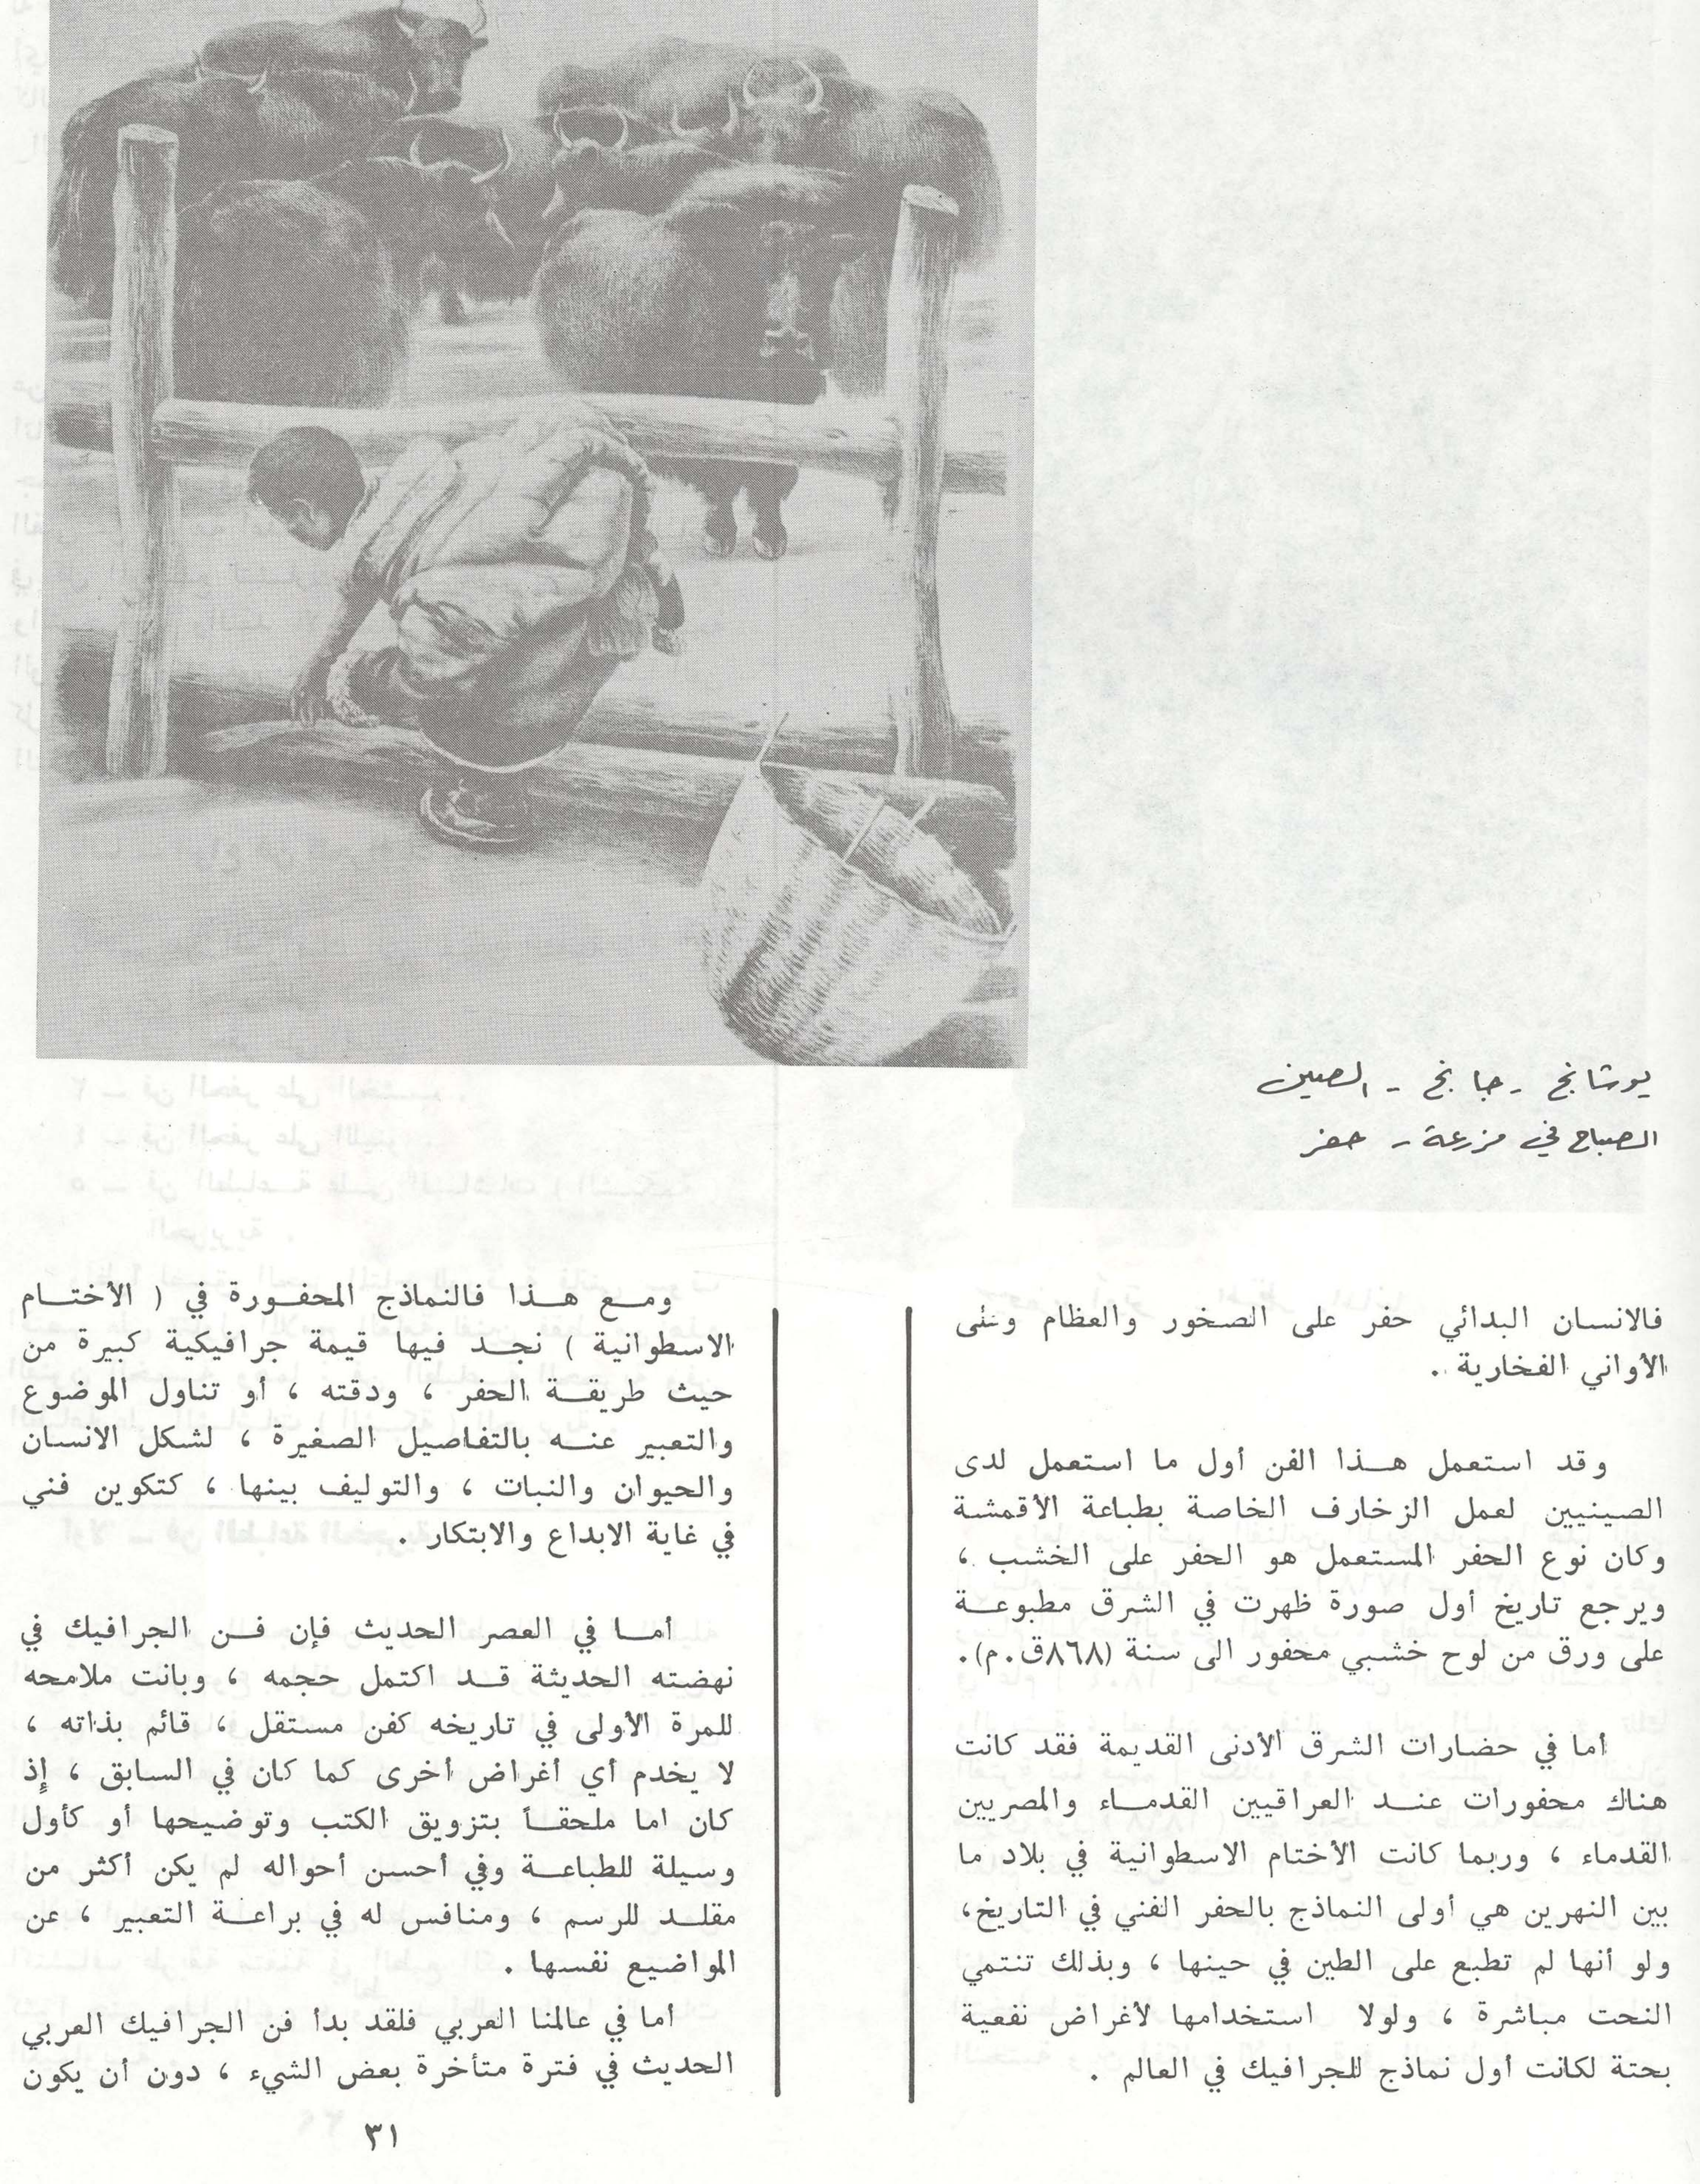 يوشانج - جانج - الصين
الصباح في مزرعة - حفر
فالانسان البدائي حفر على الصخور والعظام وعلى
الأواني الفخارية .
وقد استعمل هـذا الفن أول ما استعمل لدى
الصينيين لعمل الزخارف الخاصة بطباعة الأقمشة
وكان نوع الحفر المستعمل هو الحفر على الخشب ،
ويرجع تاريخ أول صورة ظهرت في الشرق مطبوعـة
على ورق من لوح خشبي محفور الى سنة (٨٦٨ق.م).
أما في حضارات الشرق الأدنى القديمة فقد كانت
هناك محفورات عنـد العراقيين القدمـاء والمصريين
القدماء ، وربما كانت الأختام الاسطوانية في بلاد ما
بين النهرين هي أولى النماذج بالحفر الفني في التاريخ،
ولو أنها لم تطبع على الطين في حينها ، وبذلك تنتمي
النحت مباشرة ، ولولا استخدامها لأغراض نفعية
بحتة لكانت أول نماذج للجرافيك في العالم .
ومـع هـذا فالنماذج المحفـورة في ( الأختـام
الاسطوانية ) نجـد فيها قيمة جرافيكية كبيرة من
حيث طريقـة الحفر ، ودقته ، أو تناول الموضوع
والتعبير عنـه بالتفاصيل الصغيرة ، لشكل الانسان
والحيوان والنبات ، والتوليف بينها ، كتكوين فني
في غاية الابداع والابتكار .
أمـا في العصر الحديث فإن فـن الجرافيك في
نهضته الحديثة قـد اكتمل حجمه ، وبانت ملامحه
للمرة الأولى في تاريخه كفن مستقل ، قائم بذاته ،
لا يخدم أي أغراض أخرى كما كان في السابق ، إذ
كان اما ملحقـاً بتزويق الكتب وتوضيحها أو كأول
وسيلة للطباعـة وفي أحسن أحواله لم يكن أكثر من
مقلـد للرسم ، ومنافس له في براعـة التعبير ، عن
المواضيع نفسها .
أما في عالمنا العربي فلقد بدأ فن الجرافيك العربي
الحديث في فترة متأخرة بعض الشيء ، دون أن يكون
٣١